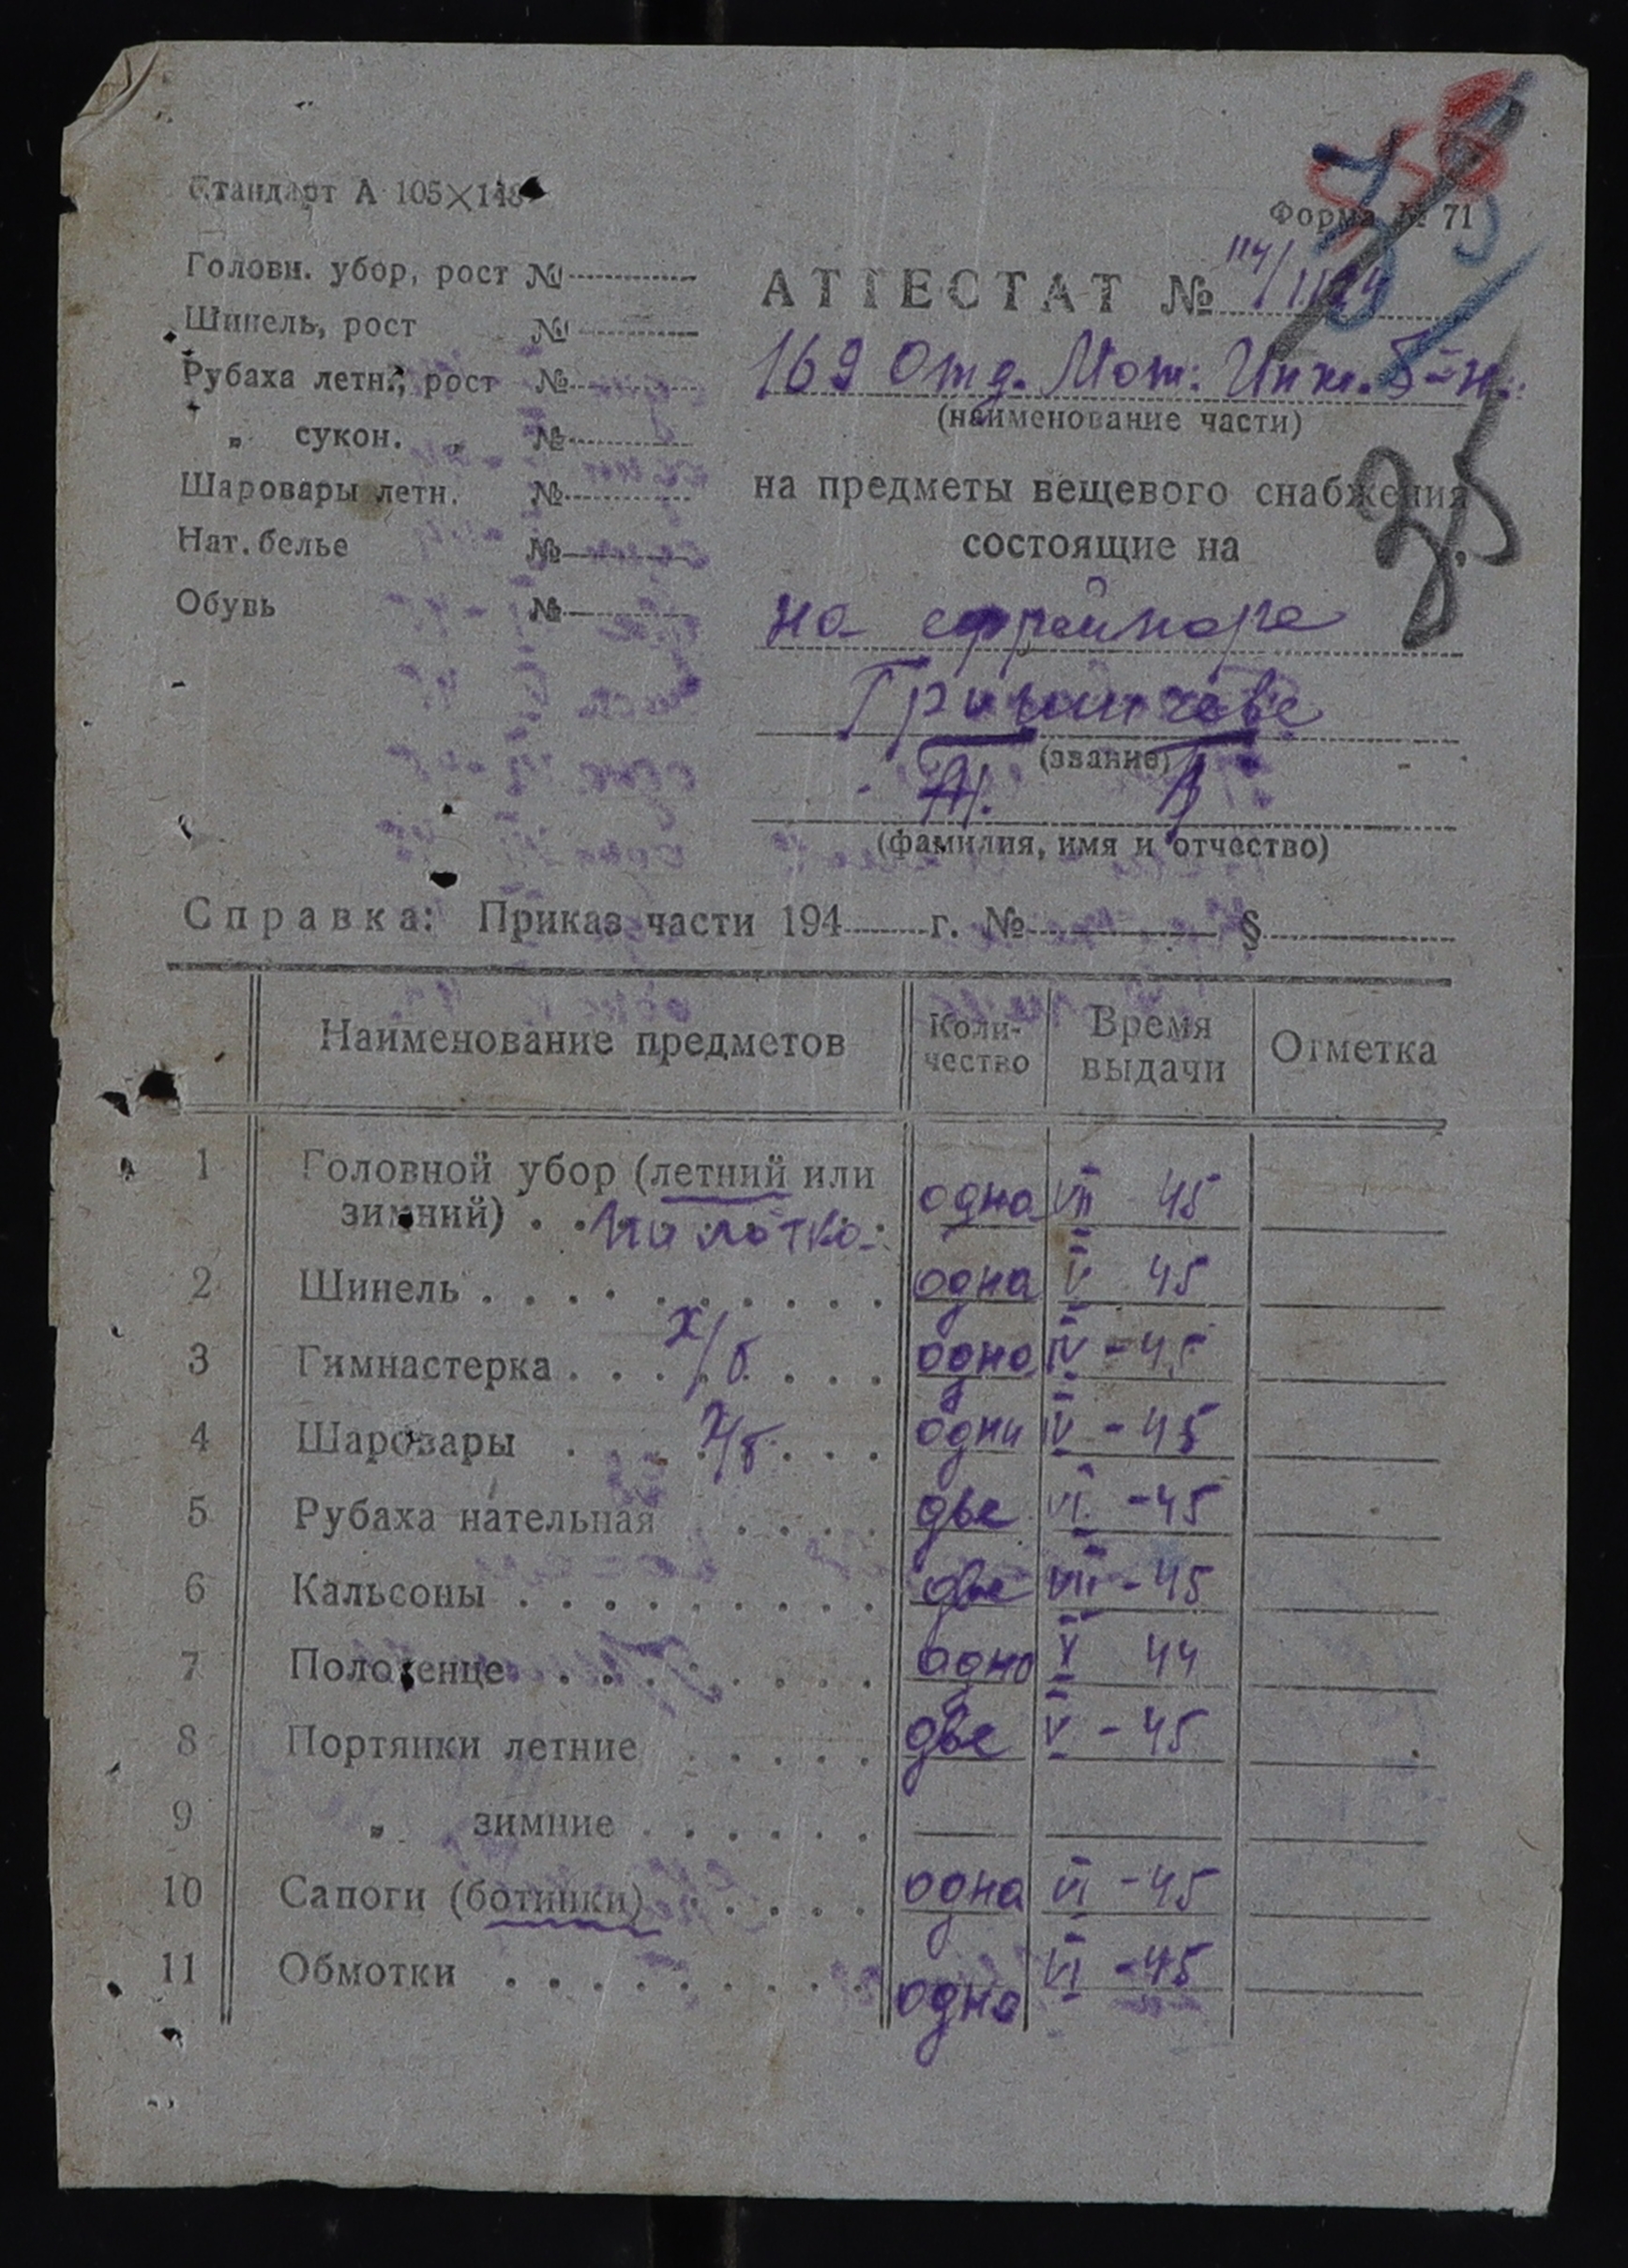 Стандарт А 105×148
Форма № 71
Головн. убор, рост №
Шинель, рост №
Рубаха летн., рост №
„ сукон. „ №
Шаровары летн. №
Нат. белье №
Обувь №
АТТЕСТАТ № 114/
169 Отд. Мот. Инж. Б-н.
(наименование части)
на предметы вещевого снабжения
состоящие на
на ефрейтора
(звание)
(фамилия, имя и отчество)
Справка: Приказ части 194 г. № §
Наименование предметов Коли-чество Время выдачи Отметка
1 Головной убор (летний или
зимний) . . пилотка одна VII 45
2 Шинель . . . . . . . . . . одна V 45
3 Гимнастерка . . х/б. . . . одна IV - 45
4 Шаровары . . . х/б . . . одни IV - 45
5 Рубаха нательная . . . . две VI - 45
6 Кальсоны . . . . . . . . . две VII - 45
7 Полотенце . . . . . . . . одно X 44
8 Портянки летние . . . . . две V - 45
9 „ зимние . . . . . .
10 Сапоги (ботинки) . . . . одна VI - 45
11 Обмотки . . . . . . . . . одна VI - 45